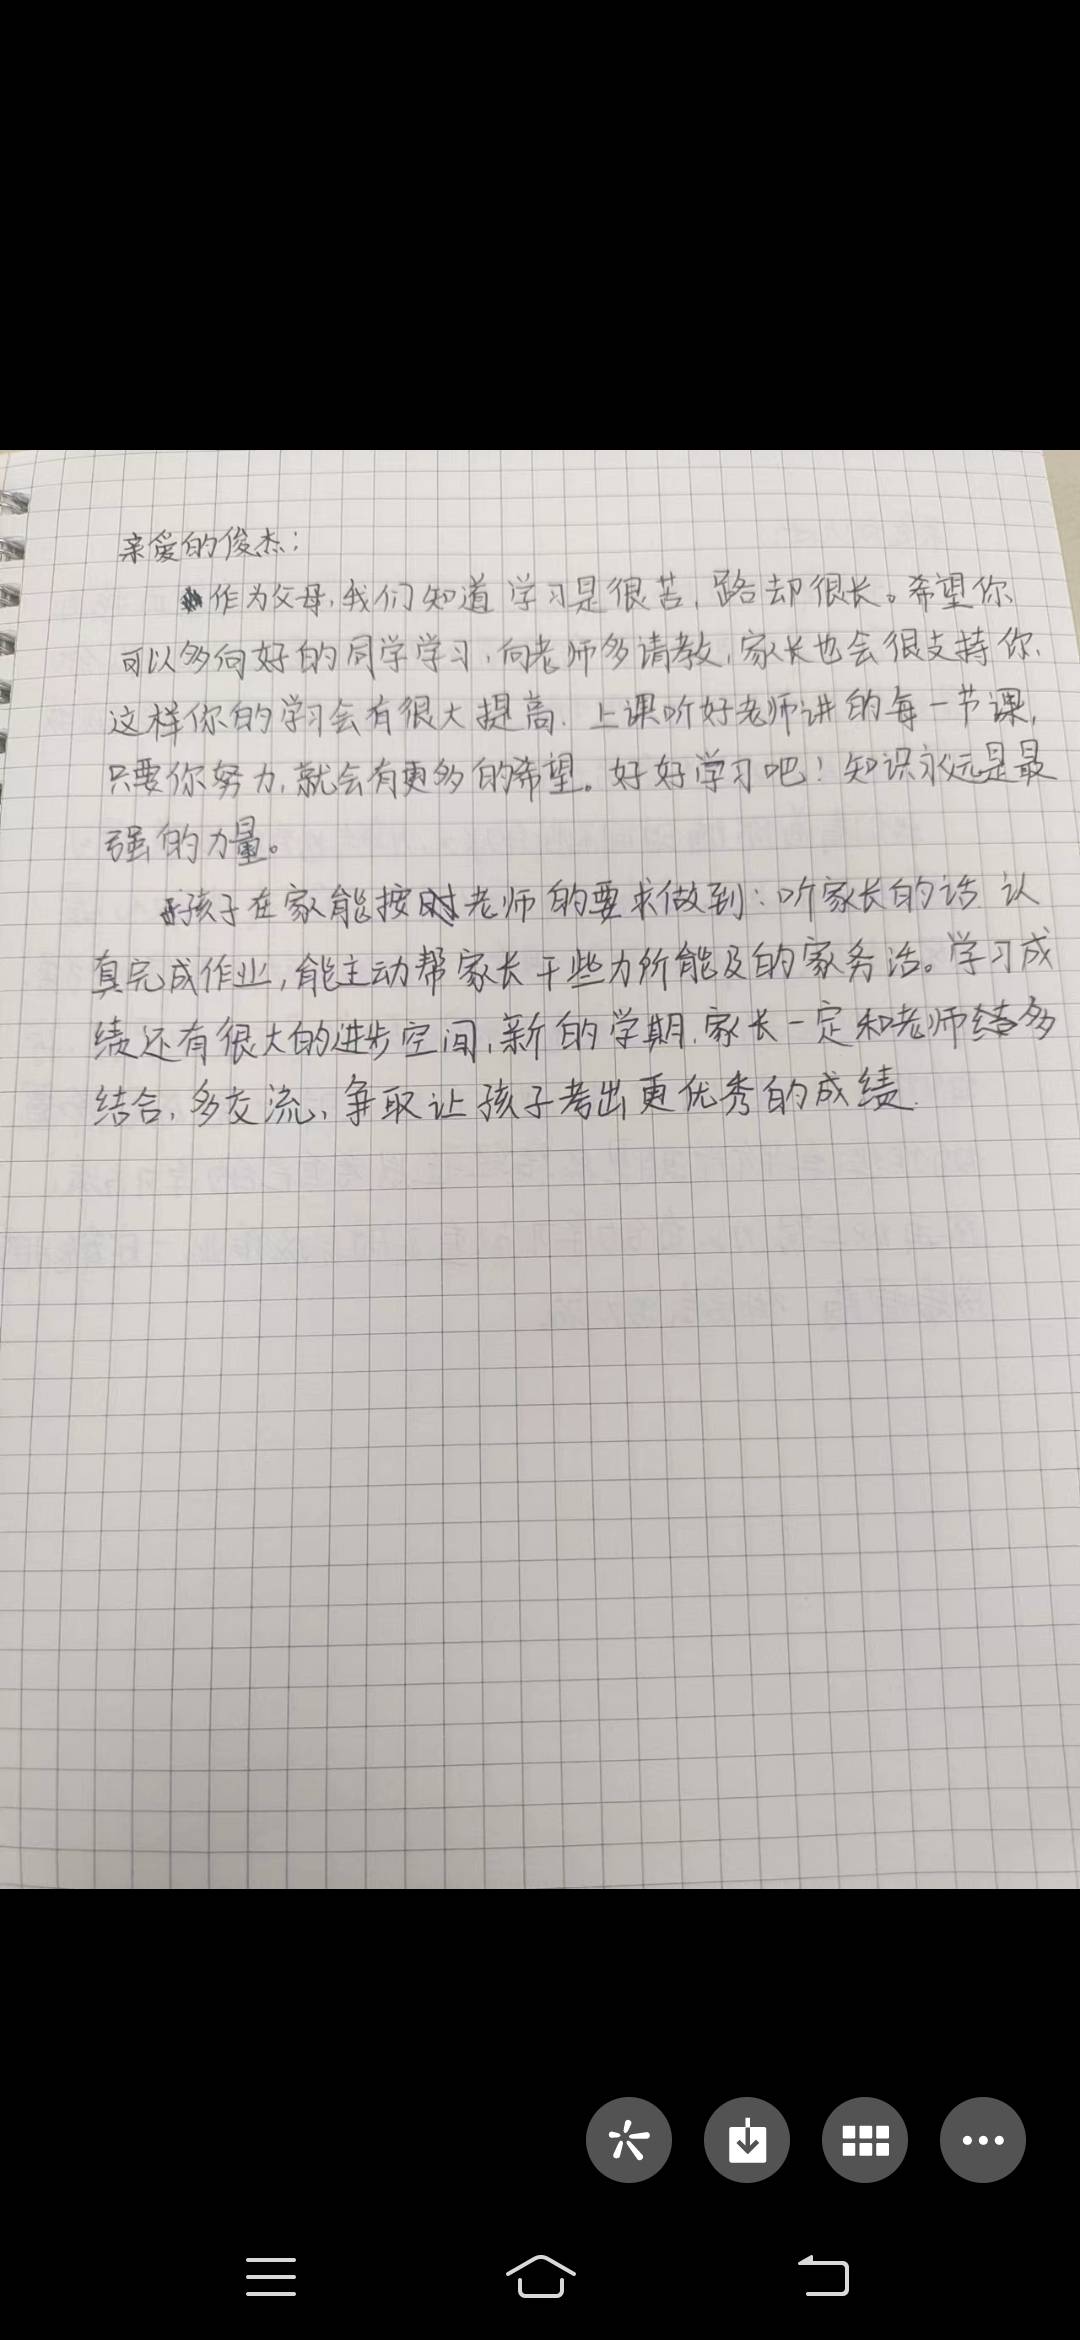 亲爱的俊杰：
作为父母，我们知道学习是很苦，路却很长。希望你
可以多向好的同学学习，向老师多请教，家长也会很支持你，
这样你的学习会有很大提高．上课听好老师讲的每一节课，
只要你努力，就会有更多的希望。好好学习吧！知识永远是最
强的力量。
孩子在家能按时老师的要求做到：听家长的话 认
真完成作业，能主动帮家长干些力所能及的家务活。学习成
绩还有很大的进步空间，新的学期，家长一定和老师多
结合，多交流，争取让孩子考出更优秀的成绩．